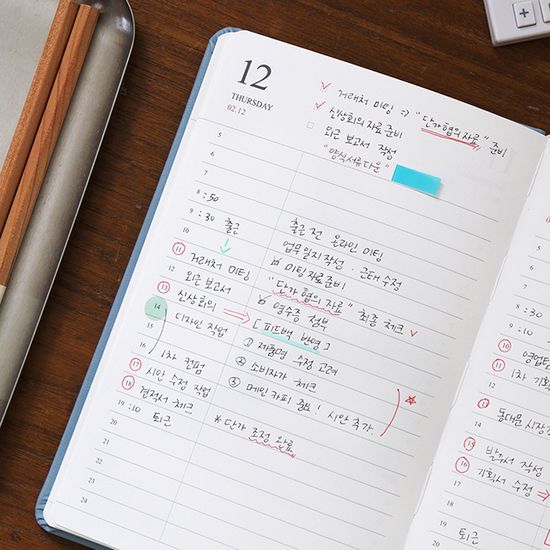 12
THURSDAY
02.12
거래처 미팅 => "단가 협의 자료" 준비
신상회의 자료 준비
외근 보고서 작성
"양식서류 다운"
5
6
7
8 :50
9 :30 출근
10
11 거래처 미팅
12 외근 보고서
13 신상회의
14
15 디자인 작업
16
1차 컨펌
17 시안 수정 작업
18 견적서 체크
19 :10 퇴근
20
21
22
23
24
출근 전 온라인 미팅
업무일지 작성 : 근태 수정
미팅 자료 준비
"단가 협의 자료" 최종 체크
영수증 첨부
[ 피드백 반영 ]
① 제품명 수정 고려
② 소비자가 체크
③ 메인 카피 중요! 시안 추가.
* 단가 조정 완료
5
6
7
8 :30
9 :30
10 영업팀
11 1차 기획
12
13 동대문 시장
14
15 발주서 작성
16 기획서 수정
17
18
19 퇴근
20